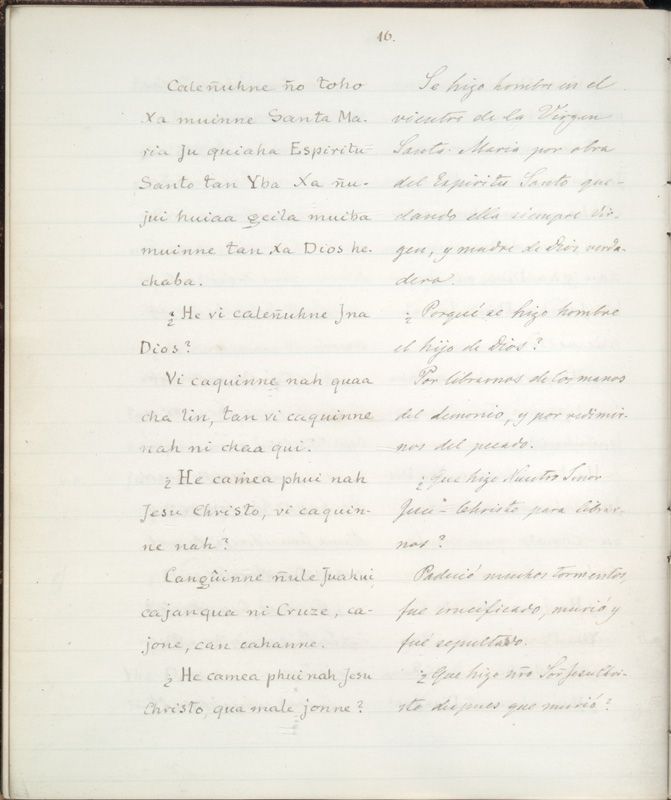 16.
Caleñuhne ño toho
Xa muinne Santa Ma-
ria Ju quiaha Espiritu
Santo tan Yba Xa ñu-
jui huiaa qcila muiba
muinne tan Xa Dios he-
chaba.
¿ He vi caleñuhne Jna
Dios?
Vi caquinne nah quaa
cha lin, tan vi caquinne
nah ni chaa qui.
¿ He camea phui nah
Jesu Christo, vi caquin-
ne nah?
Cangûinne ñule Juahui
cajanqua ni Cruze, ca-
jone, can cahanne.
¿ He camea phui nah Jesu
Christo, qua male jonne?
Se hizo hombre en el
vientre de la Virgen
Santa Maria por obra
del Espiritu Santo que-
dando ella siempre Vir-
gen, y madre de Dios verda-
dera.
¿ Porqué se hizo hombre
el hijo de Dios?
Por librarnos de los manos
del demonio, y por redimir-
nos del pecado.
¿ Que hizo Nuestro Señor
Jesu-Christo para librar-
nos?
Padeció muchos tormentos,
fue crucificado, murió y
fué sepultado.
¿ Que hizo nro Señ Jesuchri-
sto despues que murió?